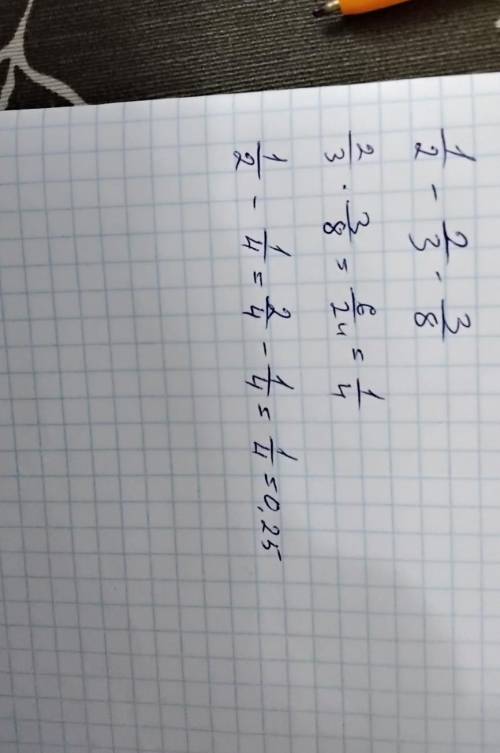 1/2 - 2/3 · 3/8
2/3 · 3/8 = 6/24 = 1/4
1/2 - 1/4 = 2/4 - 1/4 = 1/4 = 0,25